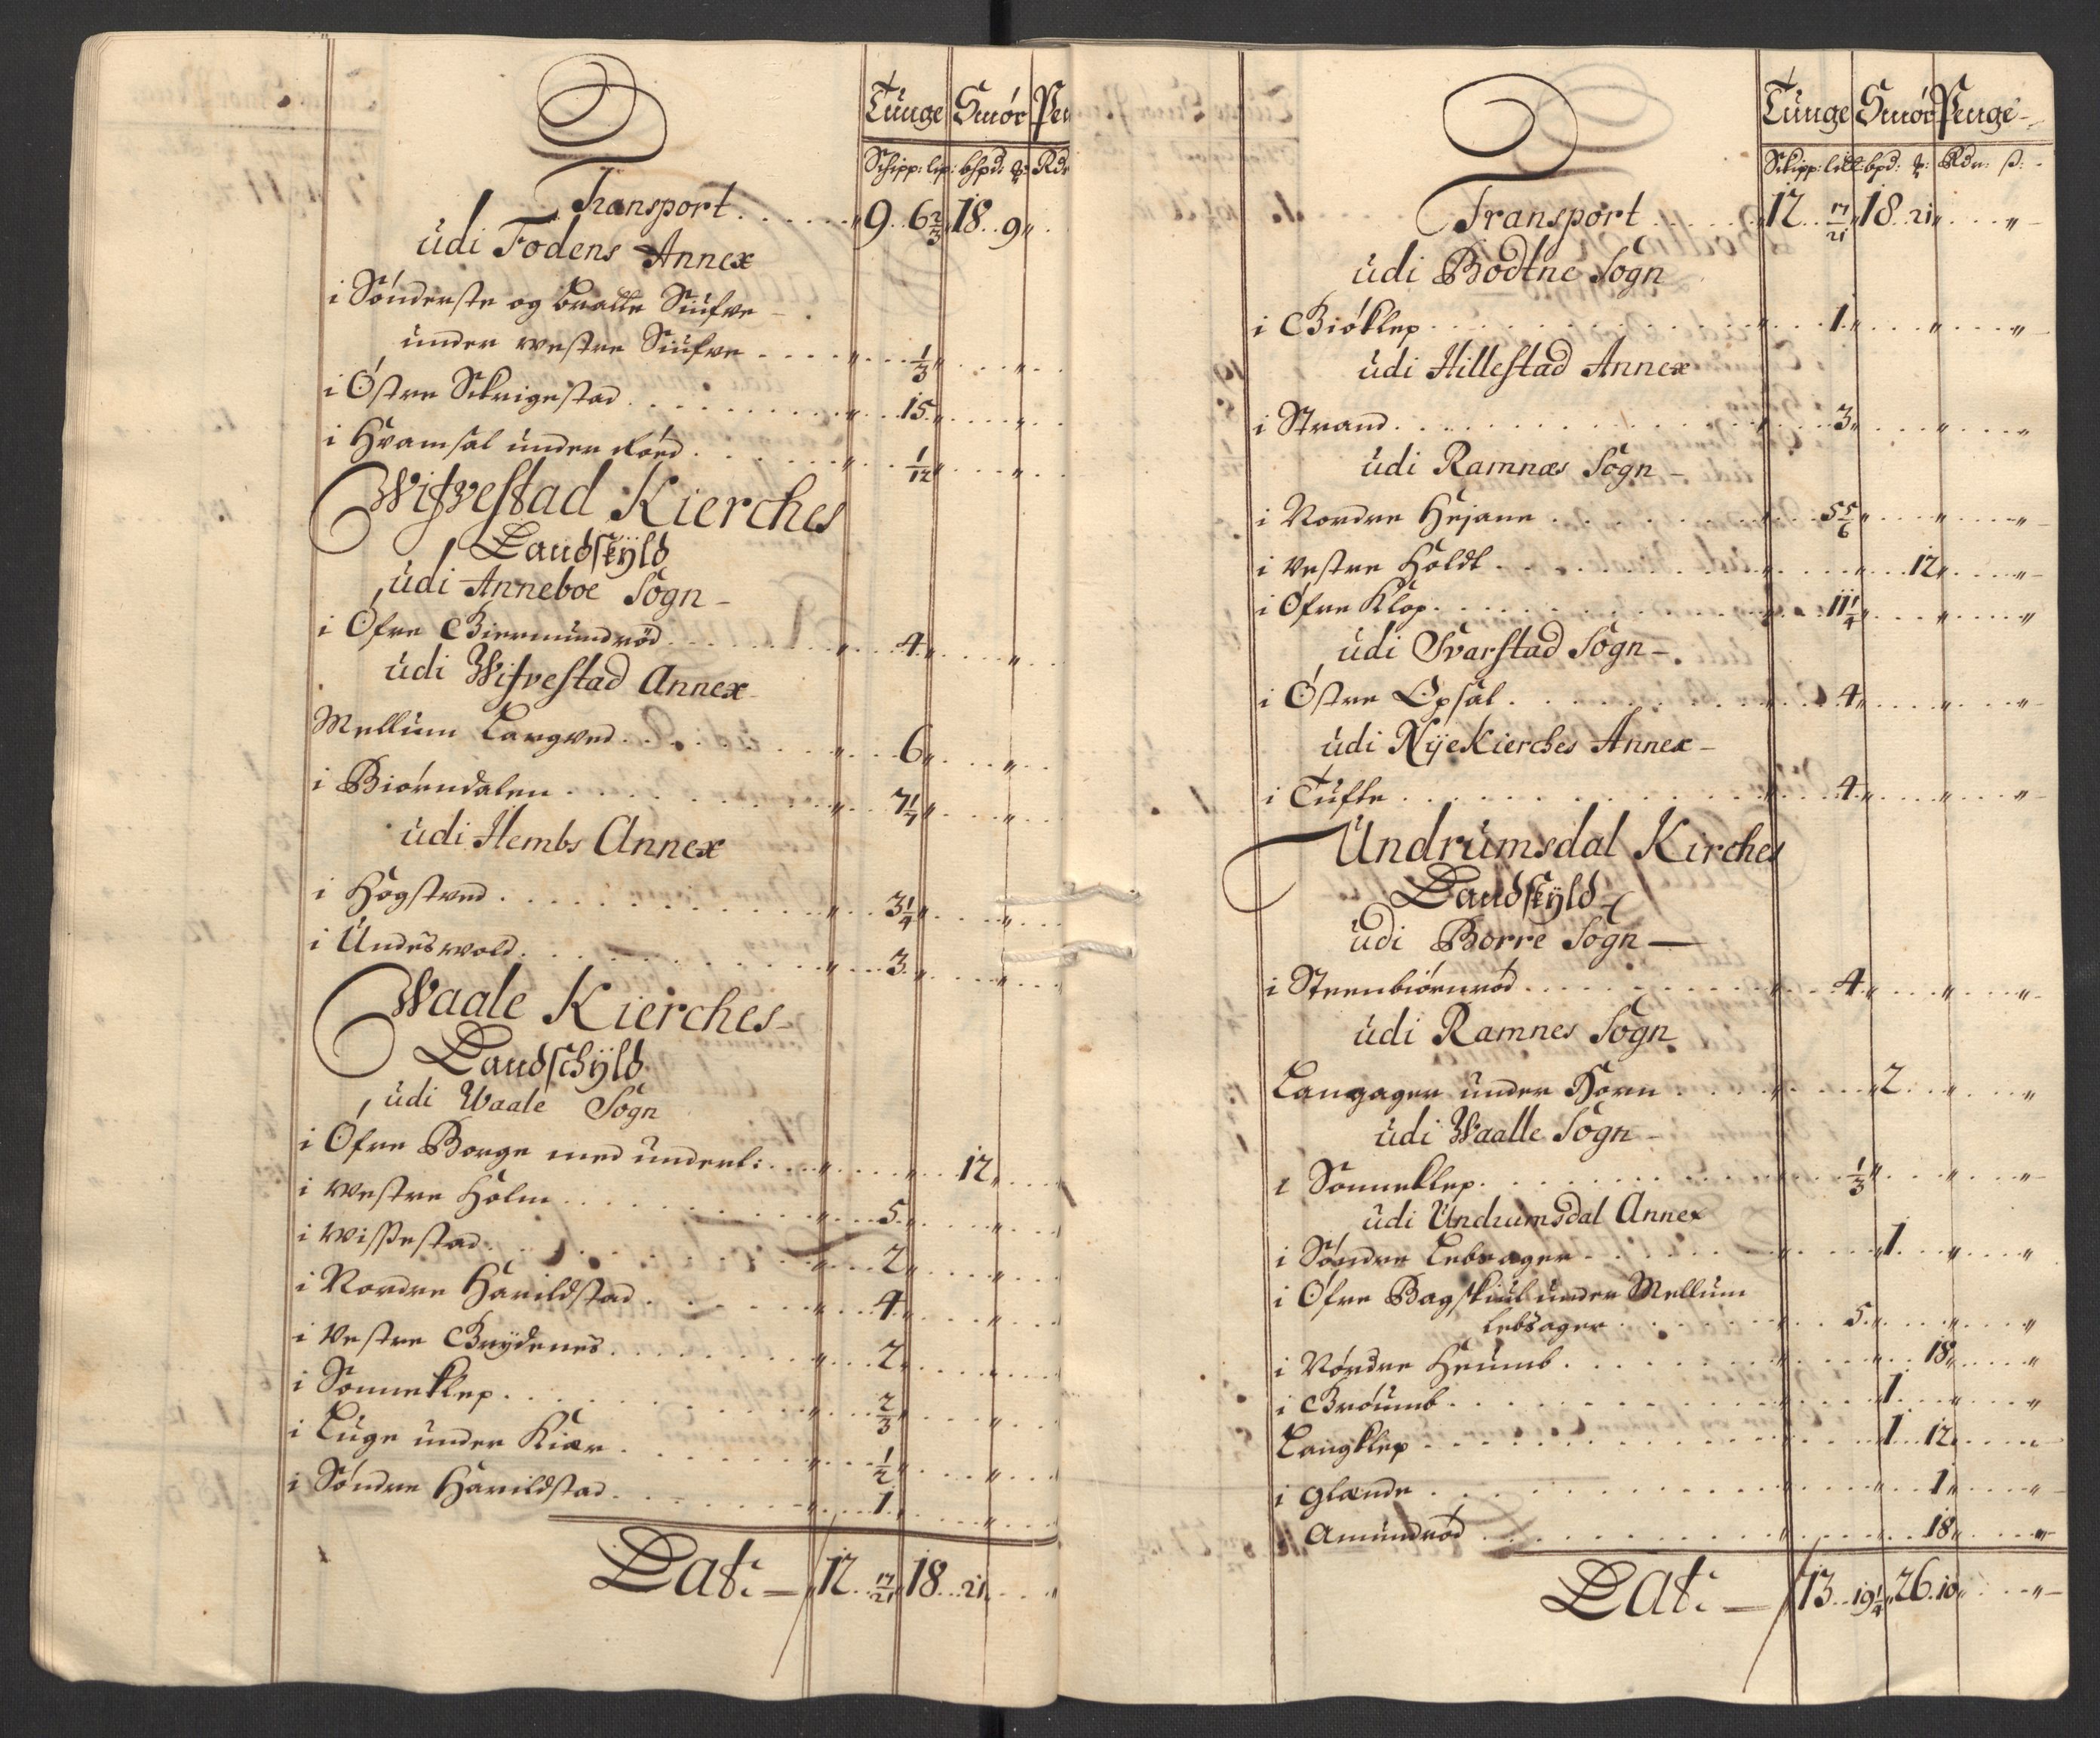 Tunge Smör Pen
Schipp: lis: bspd: ℔: Rdr
Transport. . . . . . " 9. . 6 2/3 " 18. . 9 "
udi Fodens Annex
i Sönderste og bratte Siufve -
under westre Siufve . . . . " . . . 1/3 " . . . . "
i Östre Skrigestad . . . . . . " . . . 15 " . . . . "
i Hvamsal under Röed . . . . . " . . . 1/12 " . . . . "
Wifvestad Kierches
Landskÿld
udi Anneboe Sogn -
i Öfre Giermundröd . . . . . " . . . 4 " . . . . "
udi Wifvestad Annex
Mellum Langved . . . . . . " . . . 6 " . . . . "
i Biörndalen . . . . . . . " . . . 7 1/7 " . . . . "
udi Hembs Annex
i Hogstved . . . . . . . " . . . 3 1/4 " . . . . "
i Undeswold . . . . . . . " . . . 3 " . . . . "
Waale Kierches
Landschÿld
udi Waale Sogn
i Öfre Borge med underl: . . . " . . . . " . . 12 "
i westre Holm . . . . . . " . . . 5 " . . . . "
i wissestad . . . . . . . " . . . 2 " . . . . "
i Nordre Harildstad . . . . . " . . . 4 " . . . . "
i Vestre Brÿdenes . . . . . . " . . . 2 " . . . . "
i Sonneklep . . . . . . . " . . . 2/3 " . . . . "
i Luge under Kiær . . . . . " . . . 1/2 " . . . . "
i Söndre Harildstad . . . . . " . . . 1 " . . . . "
Lat: — " 12 . . 17/21 " 18 . . 21 " . . "
Tunge Smör Penge -
Skipp: lis℔: bpd: ℔: Rdr: ß:
Transport . . . . " 12 . . 17/21 " 18 . . 21 " . . . "
udi Bodtne Sogn
i Biöklep . . . . . . . " . . . 1 " . . . " . . . "
udi Hillestad Annex
i Strand . . . . . . . " . . . 3 " . . . " . . . "
udi Ramnæs Sogn -
i Nordre Hejane . . . . . . " . . . 5 5/6 " . . . " . . . "
i vestre Holdt . . . . . . " . . . . " . . 12 " . . . "
i Öfre Klop . . . . . . . " . . . 11 1/4 " . . . " . . . "
udi Svarstad Sogn -
i Östre Opsal . . . . . . " . . . 4 " . . . " . . . "
udi NÿeKierches Annex -
i Tufte . . . . . . . " . . . 4 " . . . " . . . "
Undrumsdal Kirches
Landskÿld
udi Borre Sogn —
i Steenbiörnröd . . . . . . " . . . 4 " . . . " . . . "
udi Ramnes Sogn
Langager under Horn . . . . " . . . . " 2 . . " . . . "
udi Waalle Sogn -
i Sonneklep . . . . . . . " . . . 1/3 " . . . " . . . "
udi Undrumsdal Annex
i Söndre Lebsager . . . . . . " . . . . " 1 . . " . . . "
i Öfre Bagskiul under Mellum
Lebsager . . . . . " . . . 5 " . . . " . . . "
i Nordre Heumb . . . . . . " . . . . " . . 18 " . . . "
i Bröumb . . . . . . . " . . . . " 1 . . " . . . "
Langklep . . . . . . . " . . . . " 1 . . 12 " . . . "
i Glænde . . . . . . . " . . . . " . . 1 " . . . "
i Amundröd . . . . . . . " . . . . " . . 18 " . . . "
Lat: — " 13 . . 19 1/4 " 26 . 10 " . . . "